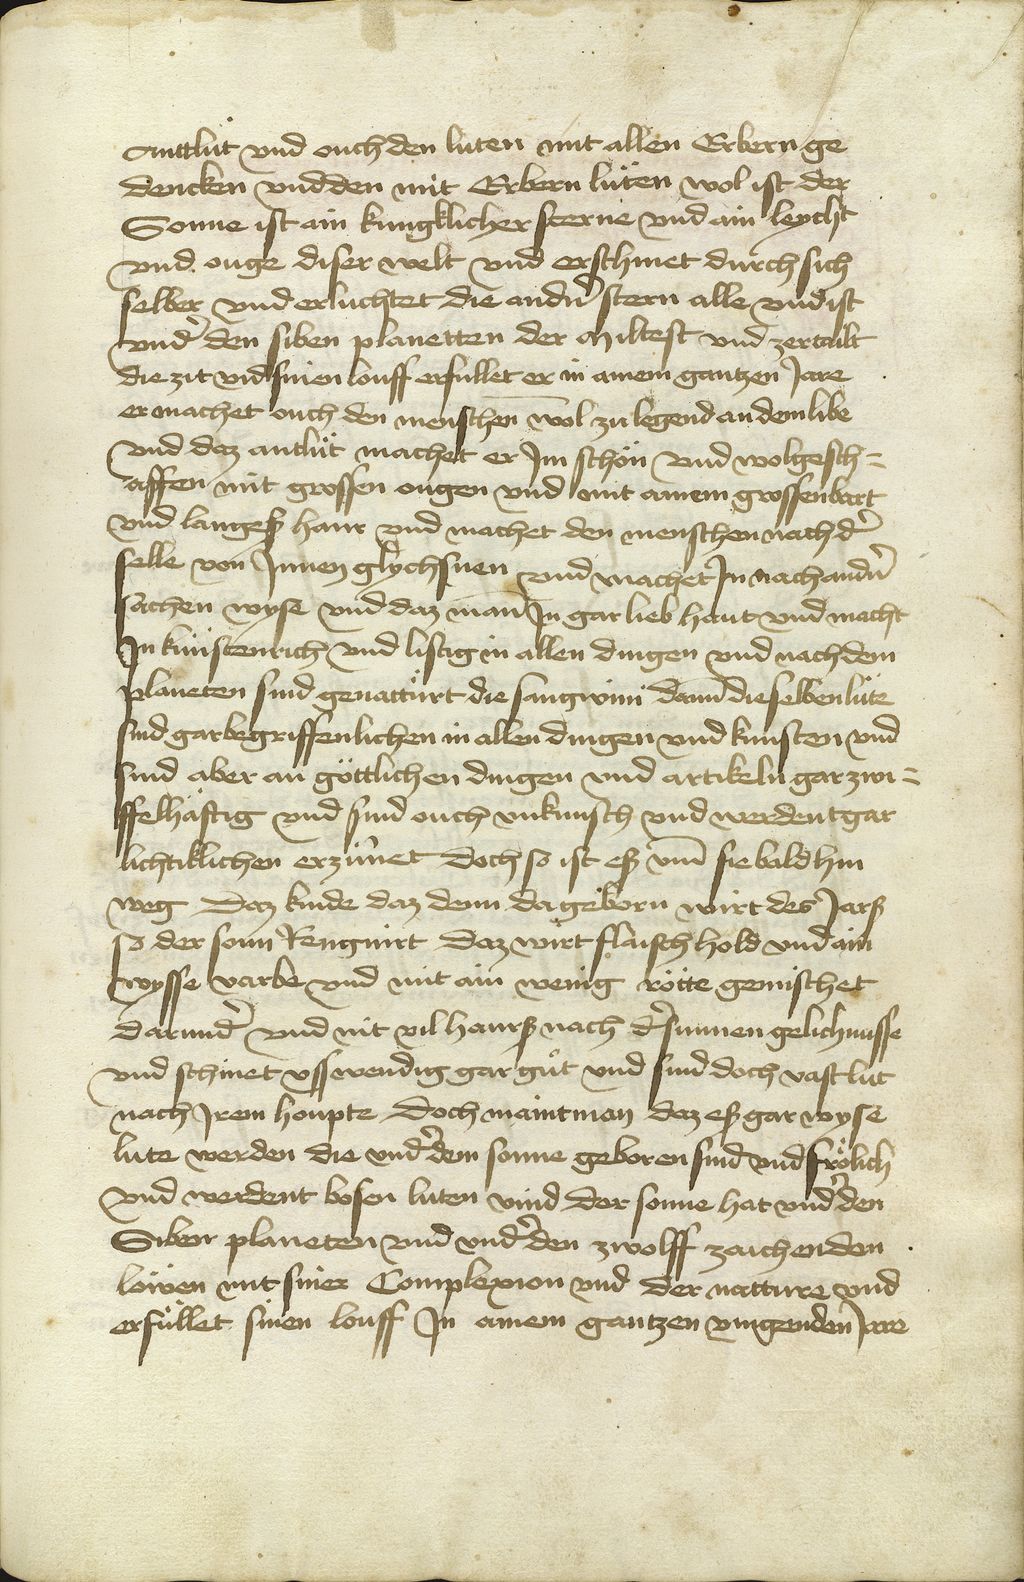 Anttlüt vnd ouch den luten mit allen Erbern ge
dencken vnd den mit Erbern lüten wol ist der
Sonne ist ain kungklicher sterne vnd ain leycht
vnd ouge diser welt vnd erschinet durch sich
selber vnd erluchtet die andn̄ stern alle vnd ist
vnd̄ den siben planetten der miltest vnd zertailt
die zit vnd sinen louff erfullet er in ainem gantzen Jare
er machet ouch den menschen wol zu legend an dem libe
vnd daz antlüt machet er Jm schön vnd wolgesch=
affen mit grossen ougen vnd mit ainem grossen bart
vnd langeß haur vnd machet den menschen nach d̄
selle von Jnnen glychsnen vnd machet Jn nach andn̄
sachen wyse vnd daz man Jn gar lieb haut vnd macht
Jn künstenrich vnd listig in allen dingen vnd nach dem
planeten sind genattürt die sangwini dann die selben lüte
sind gar begriffenlichen in allen dingen vnd kunsten vnd
sind aber an göttlichen dingen vnd artikeln gar zwi=
ffelhäftig vnd sind ouch vnkunsch vnd werdent gar
lichtiklichen erzürnet doch so ist eß vm̄ sie bald hin
weg Daz kinde daz denn da geborn wirt des Jarß
so der sonn Rengnirt daz wirt flaisch hold vnd ain
wysse varbe vnd mit ain wenig rötte gemischet
darund̄ vnd nit vil haurß nach d̄ sunnen gelichnusse
vnd schinet vsswendig gar gůt vnd sind doch vast lut
nach Jrem houpte Doch maint man daz eß gar wyse
lute werden die vnd̄ dem sonne geboren sind vnd frölich
vnd werdent bosen luten vind Der sonne hat vnd̄ den
Siben planeten vnd vnd̄ den zwolff zaichen den
löwen mit siner Complexion vnd der natture vnd
erfüllet sinen louff Jn ainem gantzen vmgenden Jare